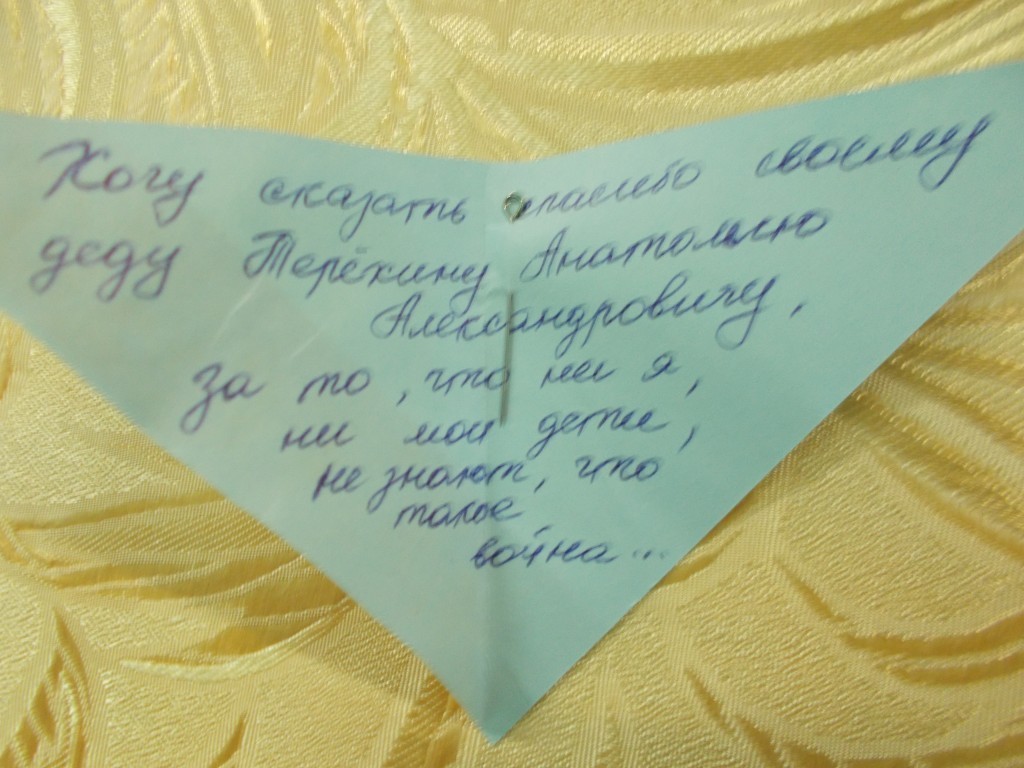 Хочу сказать спасибо своему
деду Терёхину Анатолию
Александровичу,
за то, что ни я,
ни мои дети,
не знают, что
такое
война...